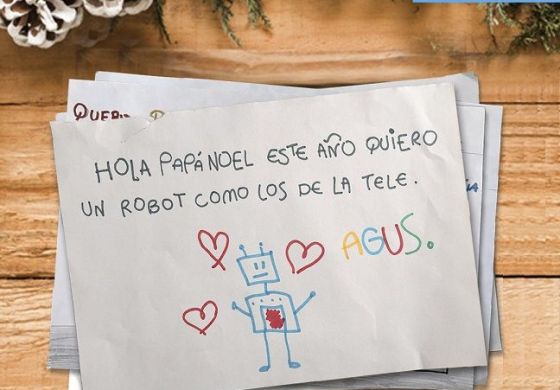 HOLA PAPÁ NOEL ESTE AÑO QUIERO
UN ROBOT COMO LOS DE LA TELE.
AGUS.